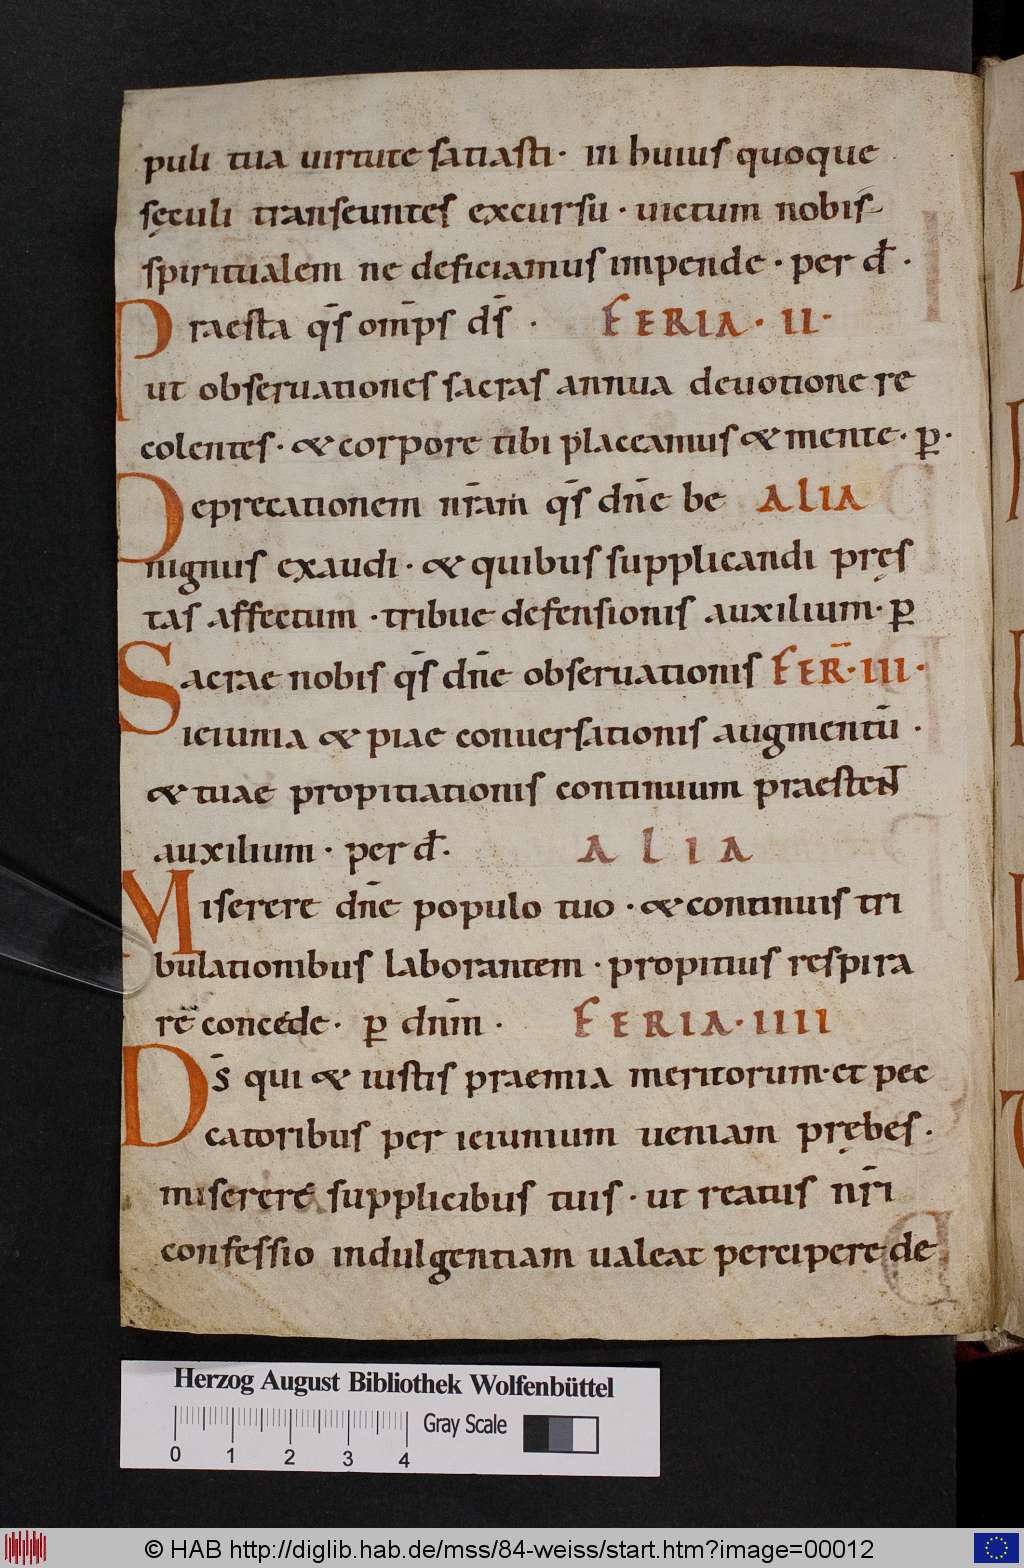 puli tua uirtute satiasti · in huius quoque
sęculi transeuntes excursu · uictum nobis
spiritualem ne deficiamus impende · per d̄ ·
Praesta q̄s om̄ps d̄s · FERIA · II ·
ut obseruationes sacras annua deuotione re
colentes · & corpore tibi placeamus & mente · p̱ ·
Deprecationem nr̄am q̄s dn̄e be ALIA
nignus exaudi · & quibus supplicandi pręs
tas affectum · tribue defensionis auxilium · p̱
Sacrae nobis q̄s dn̄e obseruationis FER̄ · III ·
ieiunia & piae conuersationis augmentū ·
& tuae propitiationis continuum praestent
auxilium · per d̄ · ALIA
Miserere dn̄e populo tuo · & continuis tri
bulationibus laborantem · propitius respira
re concede · p̱ dnm̄ · FERIA · IIII
Ds̄ qui & iustis praemia meritorum · et pec
catoribus per ieiunium ueniam prębes ·
miserere supplicibus tuis · ut reatus nr̄i
confessio indulgentiam ualeat percipere de
Herzog August Bibliothek Wolfenbüttel
Gray Scale
0 1 2 3 4
© HAB http://diglib.hab.de/mss/84-weiss/start.htm?image=00012